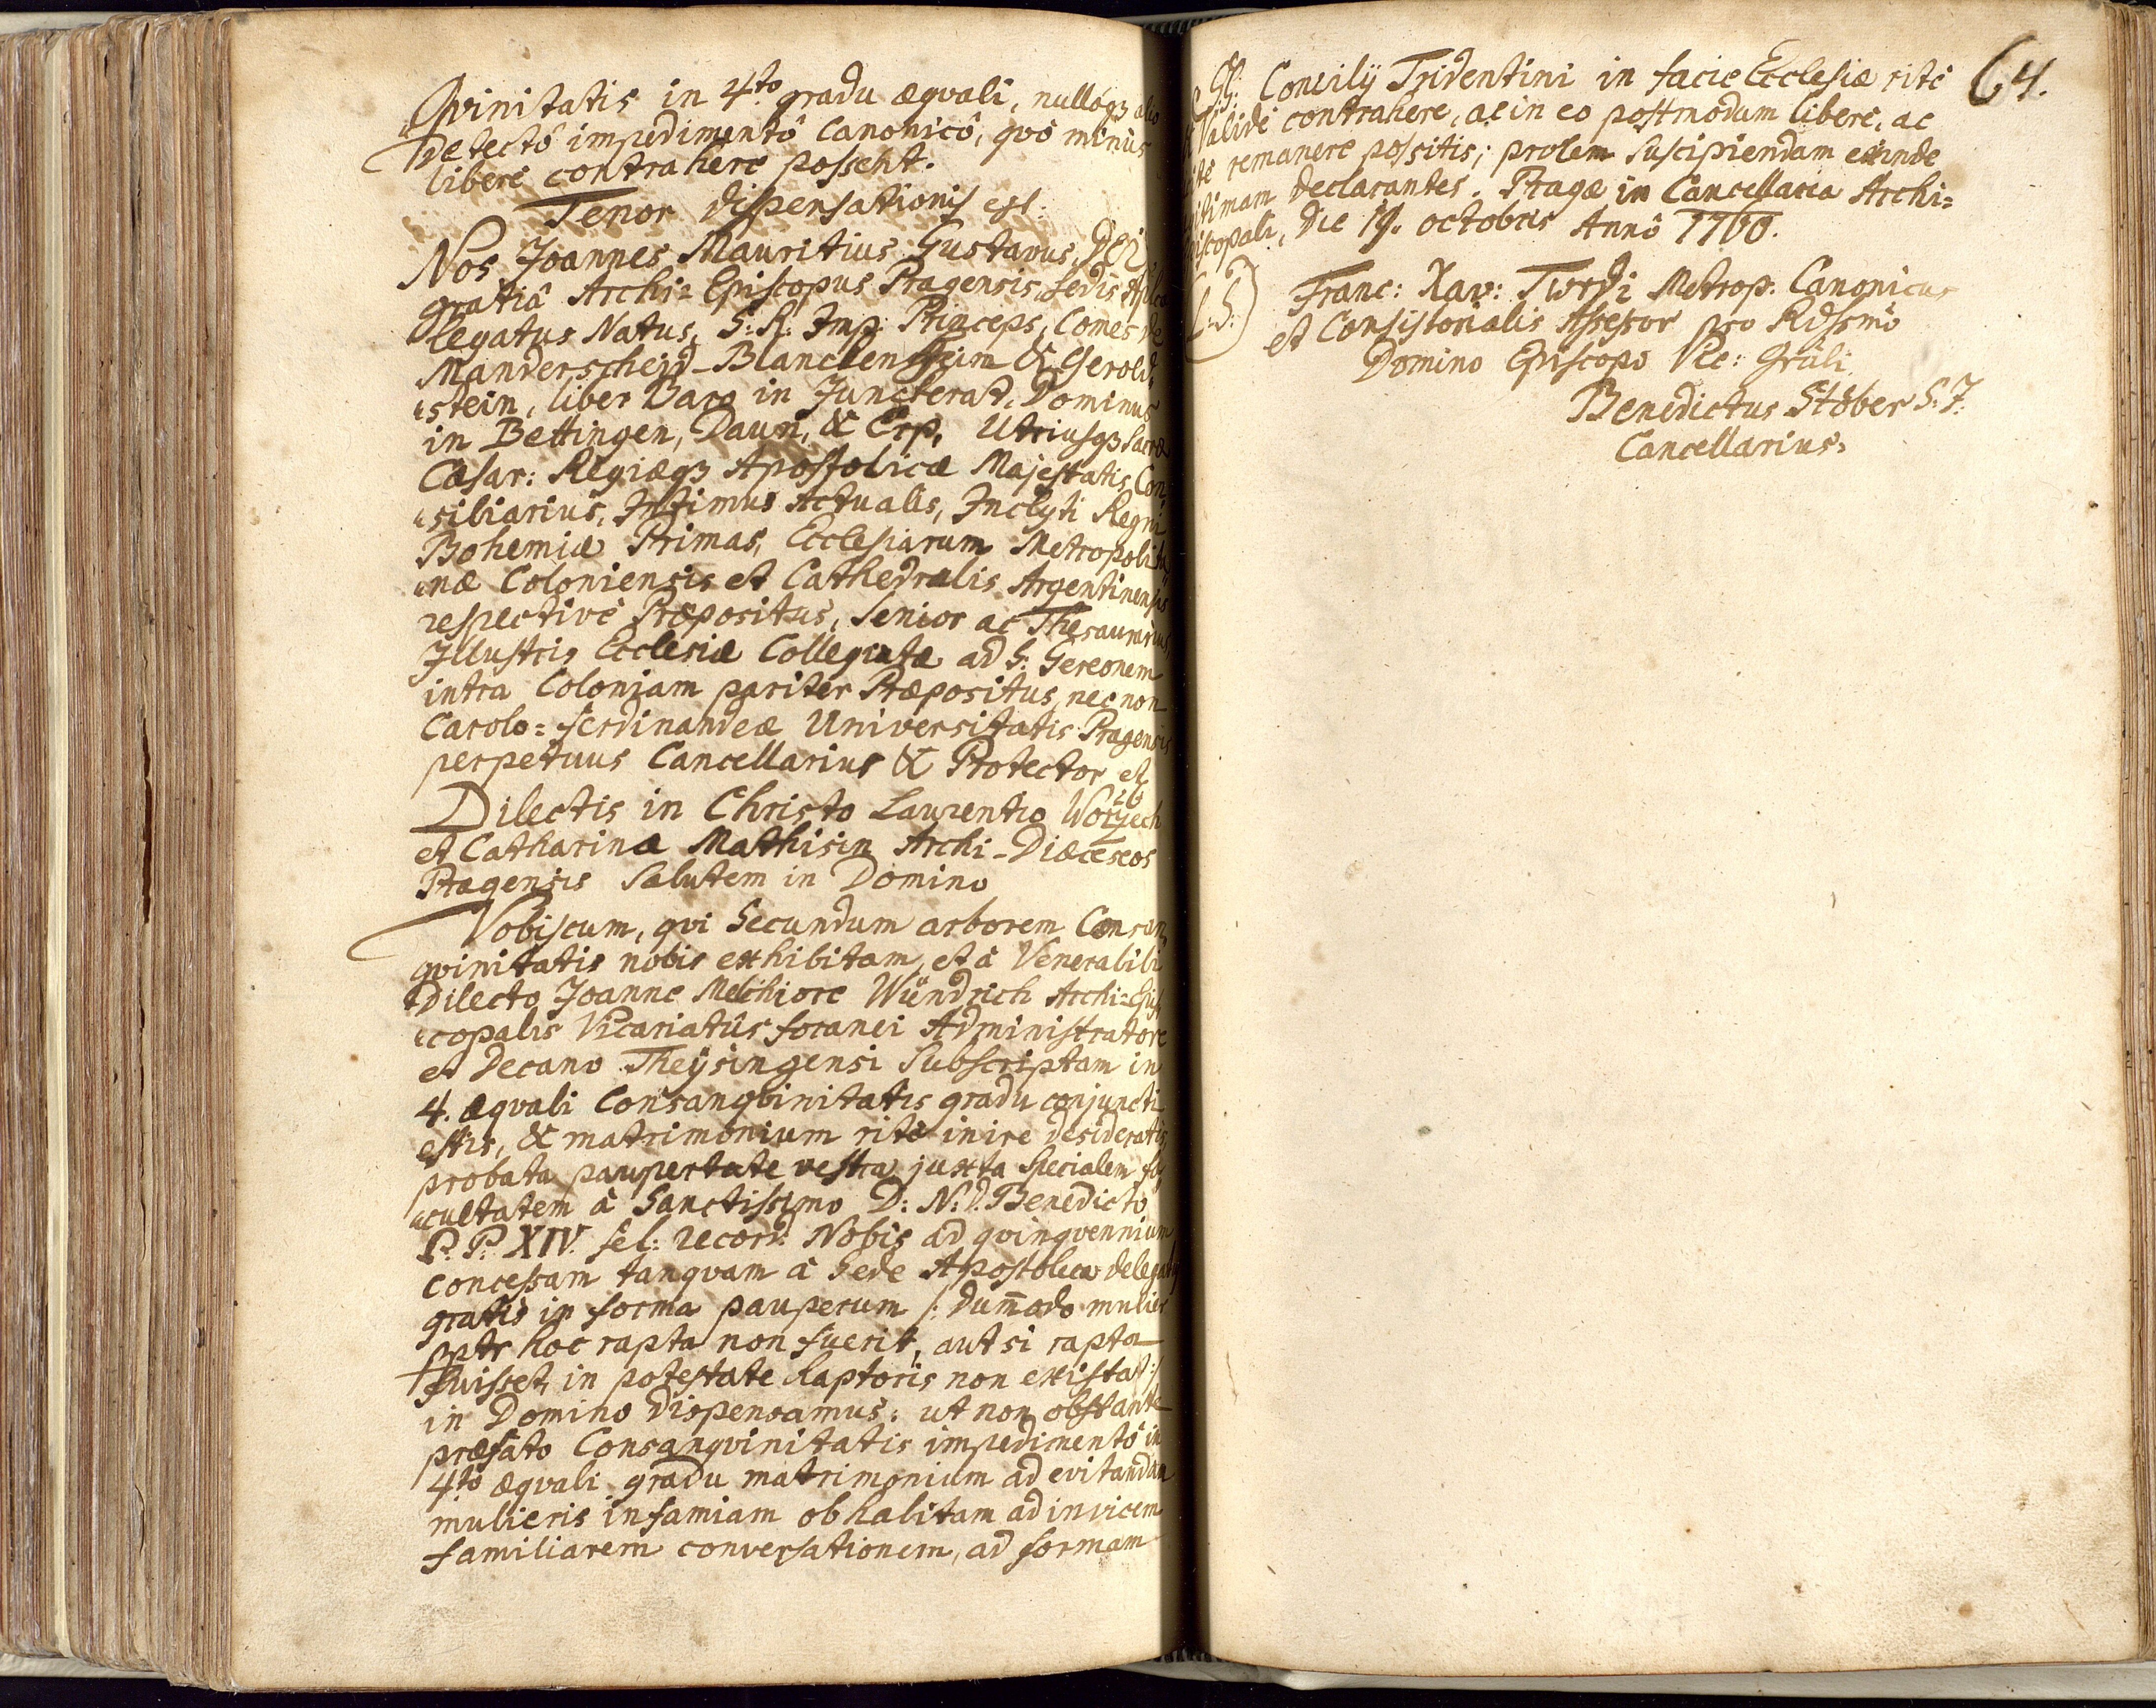 Qvinitatis in 4to gradu æqvali, nulloqз alio
detectô impedimentô Canonicô, qvô minùs
liberè contrahere possent.
Tenor dispensationis est:
Nos Joannes Mauritius Gustavus, DEI
gratiâ Archi=Episcopus Pragensis, sedis
legatus Natus, S: R: Imp: Princeps, Comes de
Manderscheid-Blanckenheim & Gerold=
=stein, liber Baro in Junckerad, Dominus
in Bettingen, Daun, & Erp, Utriusqз Sacræ
Cæsar: Regiæqз Apostolicæ Majestatis, Con=
=siliarius, Intimus Actualis, Inclyti Regni
Bohemiæ Primas, Ecclesiarum Metropolita=
=næ Coloniensis et Cathedralis Argentinensis
respectivè Præpositus, Senior ac Thesaurarius,
Illustris Ecclesiæ Collegiatæ ad S: Gereonem
intra Coloniam pariter Præpositus, nec non
Carolo=ferdinandeæ Universitatis Pragensis
perpetuus Cancellarius & Protector et
Dilectis in Christo Laurentio
et Catharinæ Mathisin Archi-Diœceseos
Pragensis Salutem in Domino
Vobiscum, qvi Secundum arborem Consan=
qvinitatis nobis exhibitam, et à Venerabili
dilecto Joanne Melchiore Wündrich Archi=Epis=
=copalis Vicariatûs foranei Administratore
et Decano Theÿsingensi Subscriptam in
4. æqvali Consanqvinitatis gradu conjuncti
estis, & matrimonium ritè inire desideratis,
probata paupertate vestra, juxta Specialem fa=
=cultatem à Sanctissimo D: N: D: Benedicto
P: P: XIV. fel: record: Nobis ad qvinqvennium
concessam tanqvam à Sede Apostolica delegatis
gratis in forma pauperum /: dum̄odo mulier
pptr hoc rapta non fuerit, aut si rapta
fuisset, in potestate Raptoris non existat :/
in Domino dispensamus: ut non obstante
præfato Consanqvinitatis impedimentô in
4tô æqvali gradu matrimonium ad evitandam
mulieris infamiam ob habitam ad invicem
familiarem conversationem, ad formam
64.
SS: Concilÿ Tridentini in facie Ecclesiæ ritè
et Validè contrahere, ac in eo postmodum liberè, ac
licitè remanere possitis; prolem suscipiendam exinde
legitimam declarantes. Pragæ in Cancellaria Archi=
Episcopali, die 19. octobris Annô 1760.
L: S:
Franc: Xav: Twrdi Metrop: Canonicus
et Consistorialis Assessor pro Rdssmo
Domino Episcopo Vic: Grāli
Benedictus Stöber S: J:
Cancellarius.